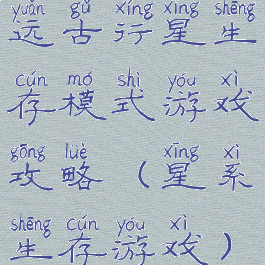 yuǎn gǔ xíng xīng shēng
远古行星生
cún mó shì yóu xì
存模式游戏
gōng lüè xīng xì
攻略（星系
shēng cún yóu xì
生存游戏）